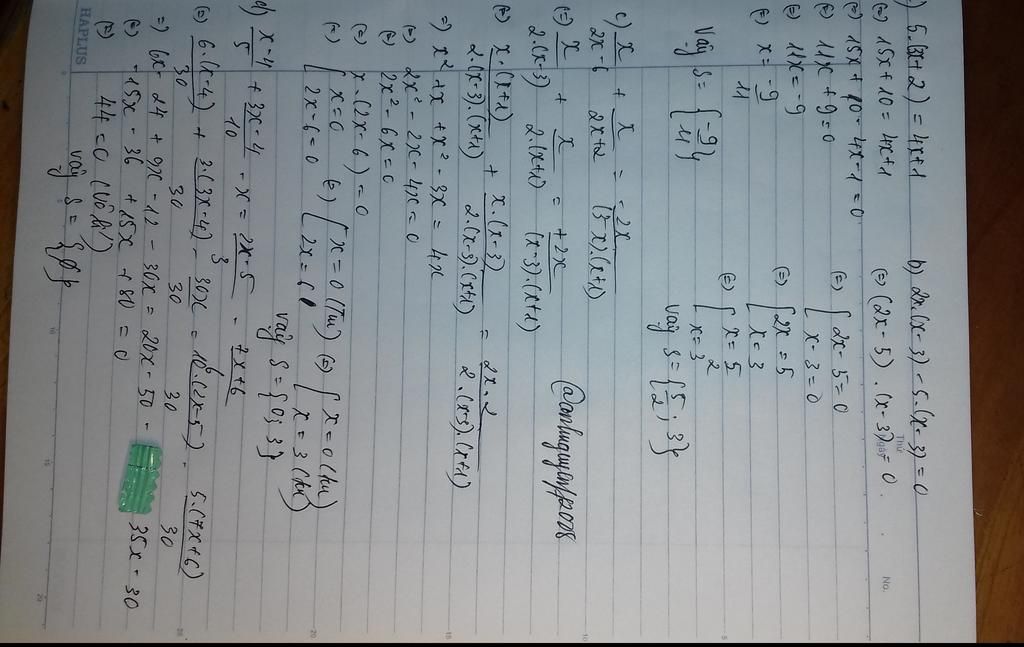 5.(3x+2) = 4x+1
(=) 15x + 10 = 4x+1
(=) 15x + 10 - 4x - 1 = 0
(=) 11x + 9 = 0
(=) 11x = -9
(=) x = -9/11
Vậy S = {-9/11}
b) 2x.(x-3) - 5.(x-3) = 0
(=) (2x-5).(x-3) = 0
(=) [ 2x-5=0
x-3=0
(=) [ 2x=5
x=3
(=) [ x=5/2
x=3
Vậy S = {5/2; 3}
c) x/2x-6 + x/2x+2 = -2x/(3-x).(x+1)
(=) x/2.(x-3) + x/2.(x+1) = +2x/(x-3).(x+1)
@anhnguyen/2008
(=) x.(x+1)/2.(x-3).(x+1) + x.(x-3)/2.(x-3).(x+1) = 2x.2/2.(x-3).(x+1)
=) x² + x + x² - 3x = 4x
(=) 2x² - 2x - 4x = 0
(=) 2x² - 6x = 0
(=) x.(2x-6) = 0
(=) [ x=0 (=) [ x=0 (Tm) (=) [ x=0
2x-6=0 2x=6 x=3
Vậy S = {0; 3}
d) x-4/5 + 3x-4/10 - x = 2x-5/3 - 7x+6/6
(=) 6.(x-4)/30 + 3.(3x-4)/30 - 30x/30 = 10.(2x-5)/30 - 5.(7x+6)/30
=) 6x - 24 + 9x - 12 - 30x = 20x - 50 - 35x - 30
(=) -15x - 36 + 15x + 80 = 0
(=) 44 = 0 (Vô lí)
Vậy S = {∅}
HAPLUS
Thứ
Ngày
No.
5
10
15
20
25
20
15
10